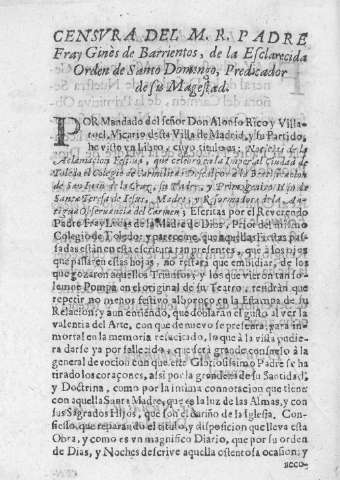 CENSVRA DEL M. R. PADRE
Fray Ginès de Barrientos, de la Esclarecida
Orden de Santo Domingo, Predicador
de su Magestad.
POR Mandado del señor Don Alonso Rico y Villa-
roel, Vicario desta Villa de Madrid, y su Partido,
he visto vn Libro, cuyo titulo es: Noticias de la
Aclamacion Festiua, que celebrò en la Imperial Ciudad de
Toledo el Colegio de Carmelitas Descalços a la Beatificacion
de San Iuan de la Cruz, su Padre, y Primogenito Hijo de
Santa Teresa de Iesus, Madre, y Reformadora de la An-
tigua Obseruancia del Carmen; Escritas por el Reverendo
Padre Fray Lucas de la Madre de Dios, Prior del mismo
Colegio de Toledo; y pareceme, que aquellas Fiestas pas-
sadas estàn en esta escritura tan presentes, que à los ojos
que passaren estas hojas, no restarà que embidiar, de los
que gozaron aquellos Triunfos; y los que vieron tan so-
lemne Pompa en el original de su Teatro, tendràn que
repetir no menos festivo alboroço en la Estampa de su
Relacion; y aun entiendo, que doblaràn el gusto al ver la
valentia del Arte, con que de nuevo se presenta, para in-
mortal en la memoria resucitado, lo que à la vista pudie-
ra darse ya por fallecido, que serà grande consuelo à la
general devocion con que este Gloriosissimo Padre se ha
tirado los coraçones, assi por la grandeza de su Santidad,
y Doctrina, como por la intima connotacion que tiene
con aquella Santa Madre, que es la luz de las Almas, y con
sus Sagrados Hijos, que son el cariño de la Iglesia. Con-
fiesso, que reparando el titulo, y disposicion que lleva esta
Obra, y como es vn magnifico Diario, que por su orden
de Dias, y Noches descrive aquella ostentosa ocasion, y